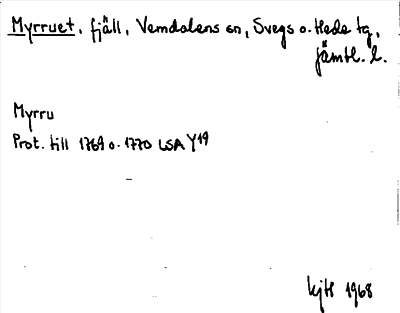 Myrruet, fjäll, Vemdalens sn, Svegs o. Hede tg,
Jämtl. l.
Myrru
Prot. till 1769 o. 1770 LSA Y19
1968